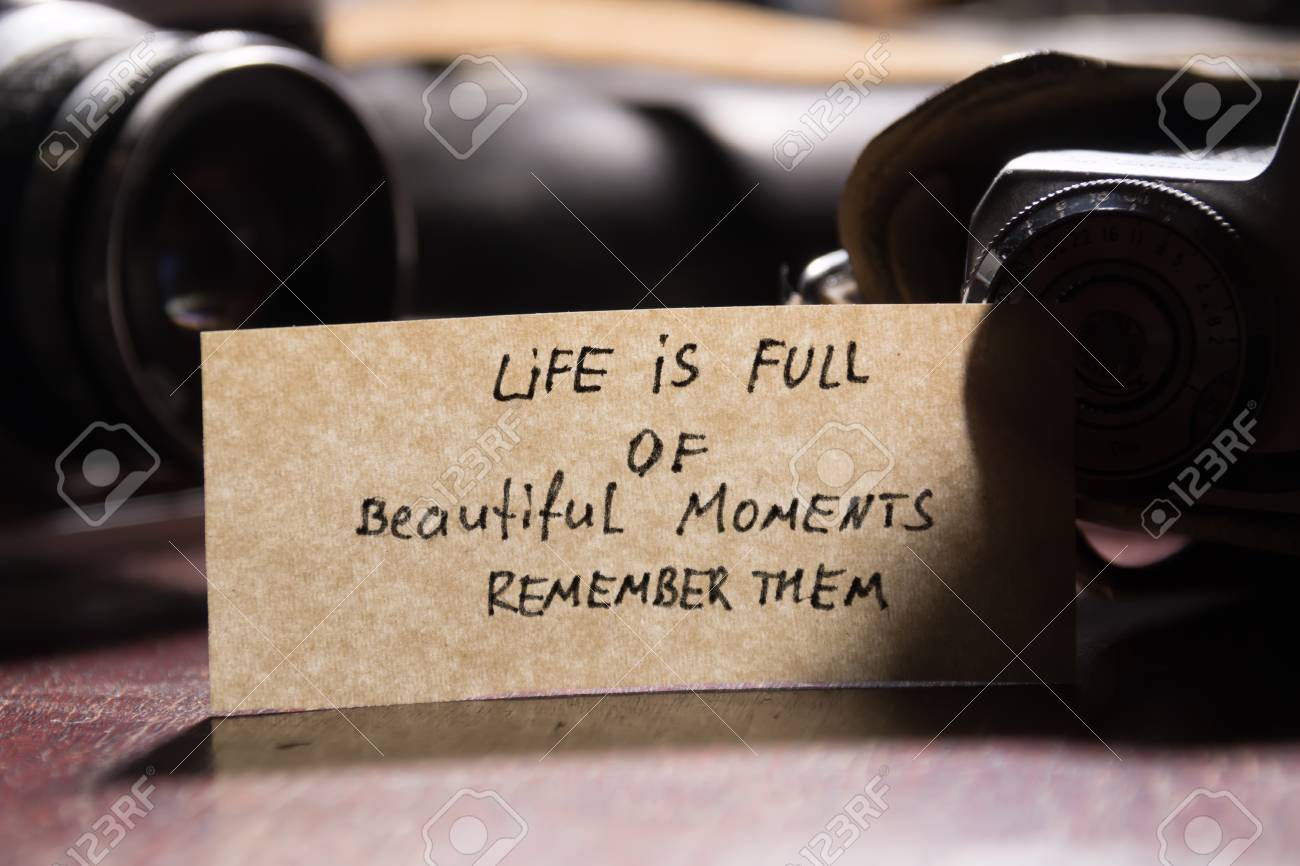 LiFE iS FULL
OF
Beautiful MOMENTS
REMEMBER THEM
123RF